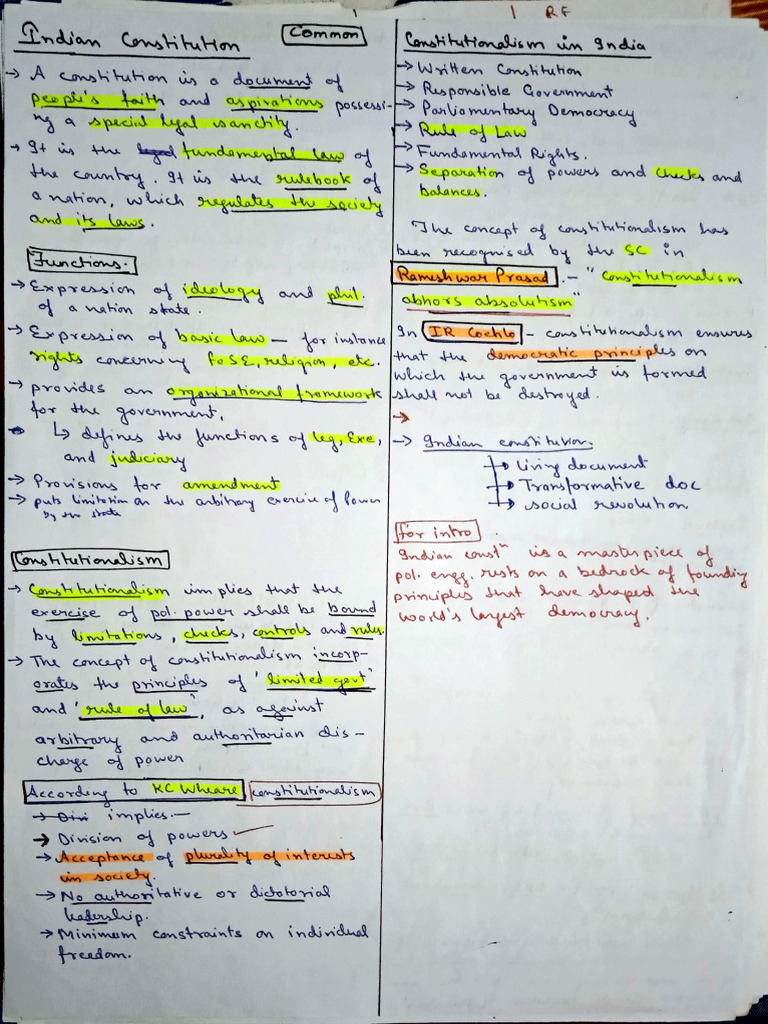 1 RF
Indian Constitution Common
→ A constitution is a document of
people's faith and aspirations possessi-
ng a special legal sanctity.
→ It is the fundamental law of
the country. It is the rulebook of
a nation, which regulates the society
and its laws.
Functions.
→ Expression of ideology and phil.
of a nation state.
→ Expression of basic law – for instance
rights concerning FoSE, religion, etc.
→ provides an organizational framework
for the government,
↳ defines the functions of leg, Exe,
and judiciary
→ Provisions for amendment
→ puts limitation on the arbitrary exercise of Power
by the state
Constitutionalism
→ Constitutionalism implies that the
exercise of pol. power shall be bound
by limitations, checks, controls and rules.
→ The concept of constitutionalism incorp-
orates the principles of 'limited govt"
and 'rule of law", as against
arbitrary and authoritarian dis-
charge of power
According to KC Wheare constitutionalism
→ Divi implies:-
→ Division of powers ✓
→ Acceptance of plurality of interests
in society.
→ No authoritative or dictatorial
leadership.
→ Minimum constraints on individual
freedom.
Constitutionalism in India
→ Written Constitution
→ Responsible Government
→ Parliamentary Democracy
→ Rule of Law
→ Fundamental Rights.
→ Separation of powers and checks and
balances.
The concept of constitutionalism has
been recognised by the SC in
Rameshwar Prasad. – "Constitutionalism
abhors absolutism"
In IR Coehlo – constitutionalism ensures
that the democratic principles on
which the government is formed
shall not be destroyed.
→
→ Indian constitution.
→ living document
→ Transformative doc
→ social revolution
for intro.
Indian constⁿ is a masterpiece of
pol. engg. rests on a bedrock of founding
principles that have shaped the
world's largest democracy.